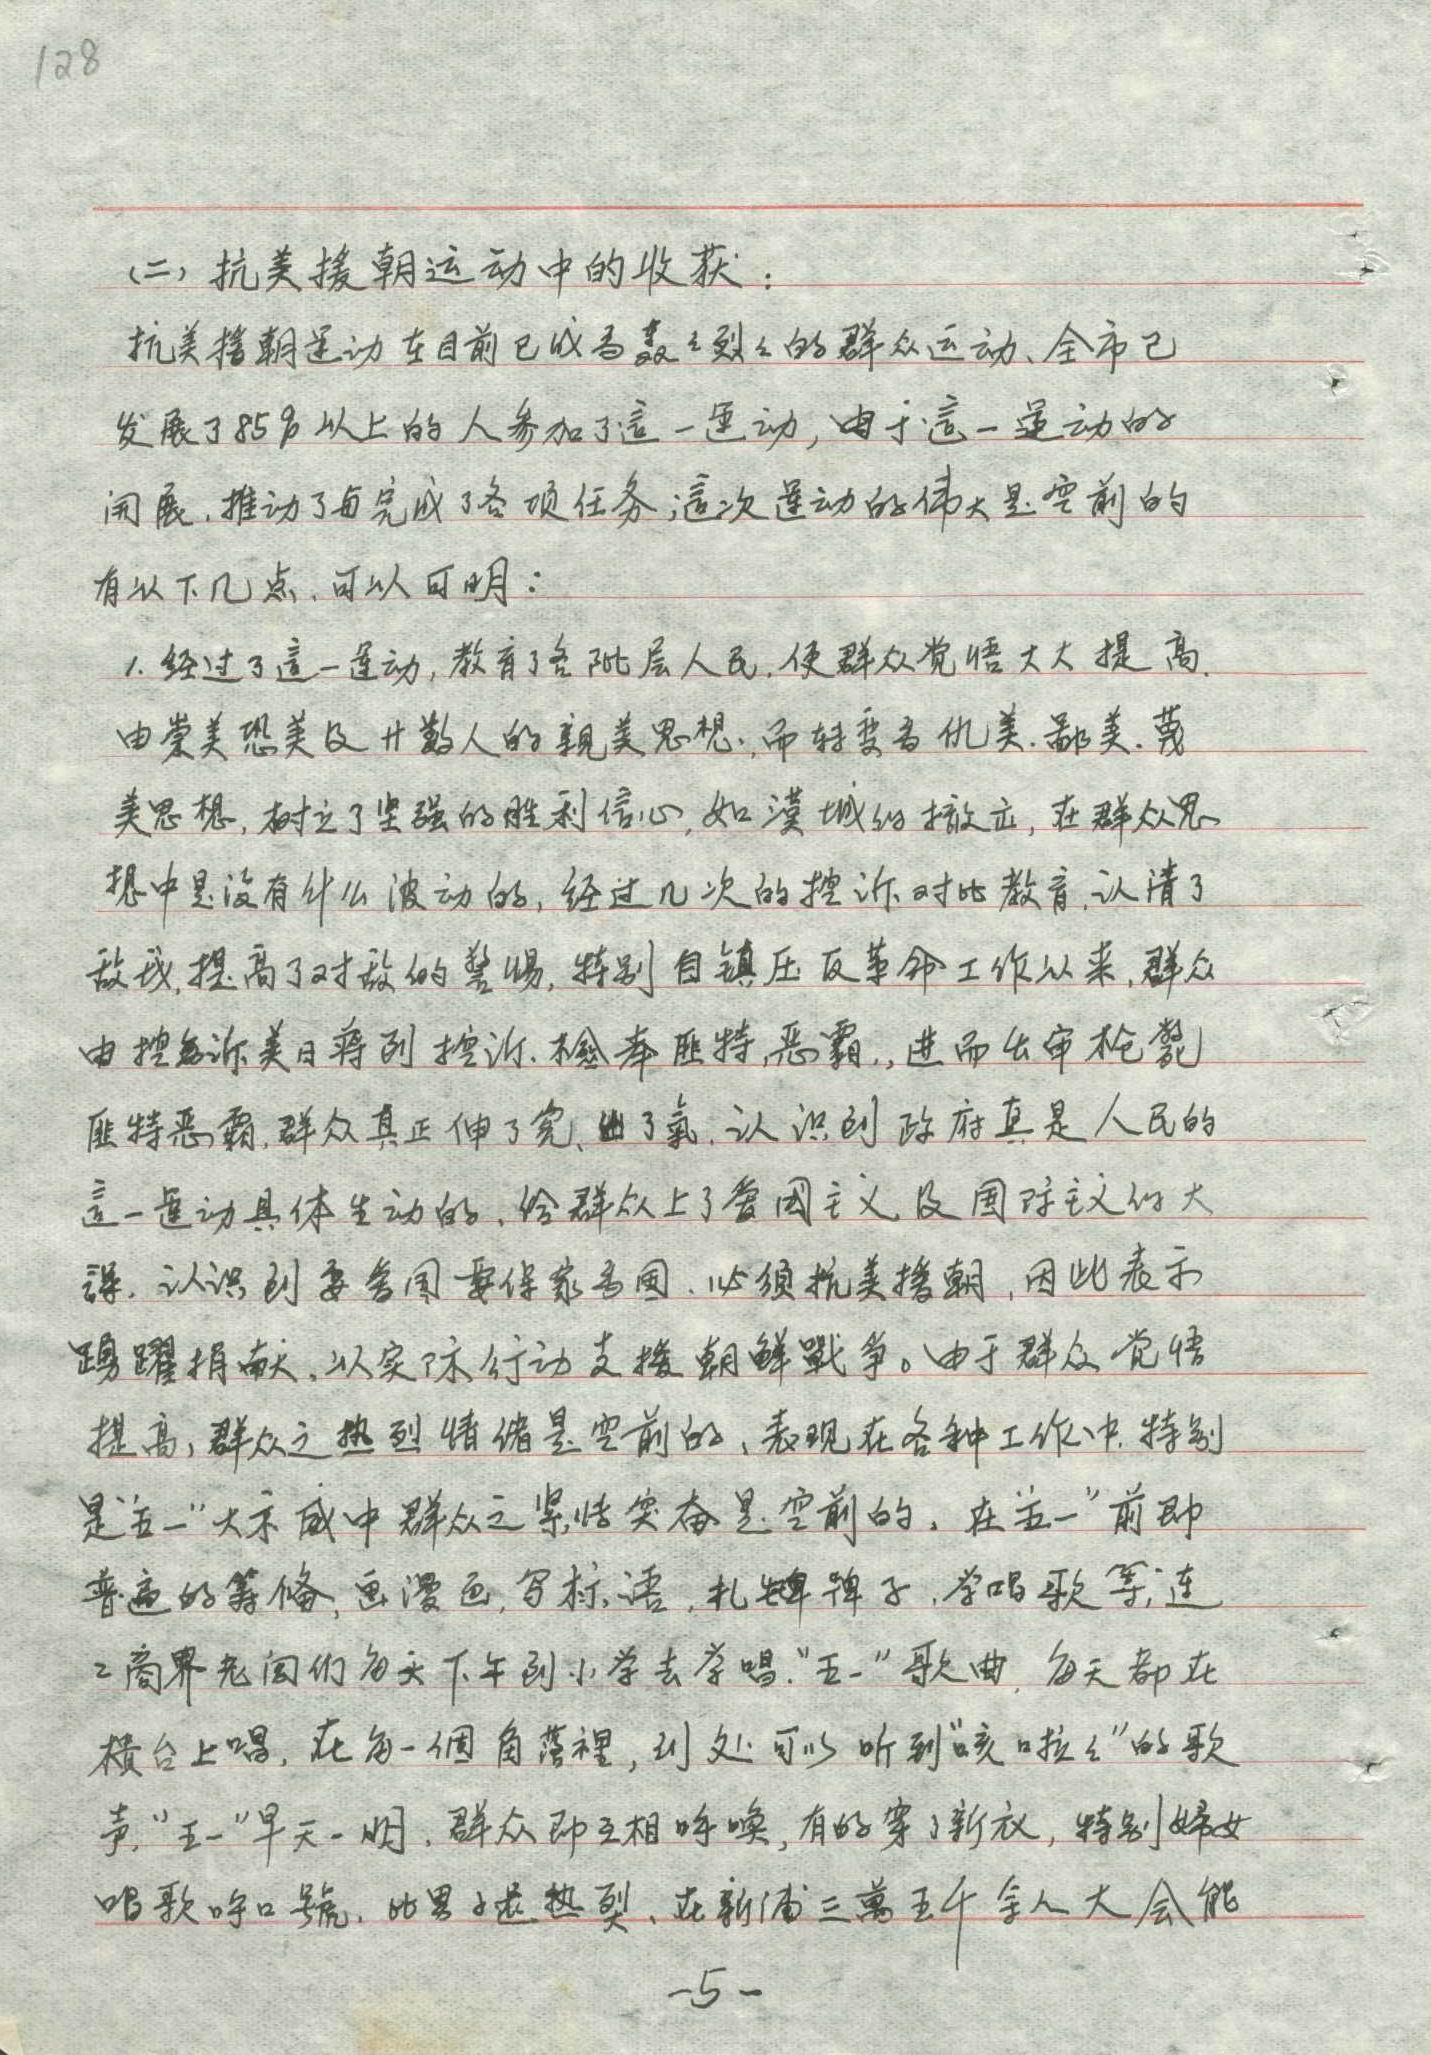 128
(二)抗美援朝运动中的收获:
抗美援朝运动在目前已成为轰々烈々的群众运动、全市已
发展了85%以上的人参加了這一运动,由于這一运动的
开展.推动了与完成了各项任务;這次运动的伟大是空前的
有以下几点.可以可明:
1.经过了這一运动,教育了各阶层人民.使群众觉悟大大提高.
由崇美恐美及廾数人的親美思想.而转变为仇美.鄙美.蔑
美思想,树立了坚强的胜利信心,如漢城的撤立,在群众思
想中是没有什么波动的,经过几次的控诉对比教育.认清了
敌我,提高了对敌的警惕,特别自镇压反革命工作以来,群众
由控诉美日蒋到控诉.检举匪特,恶霸,,进而出审枪毙
匪特恶霸.群众真正伸了冤、出了氣.认识到政府真是人民的
這一运动具体生动的.给群众上了爱国主义及国际主义的大
課.认识到要爱国要保家为国.必须抗美援朝,因此表示
踴躍捐献.以实际行动支援朝鲜戰争。由于群众觉悟
提高,群众之热烈情绪是空前的、表现在各种工作中.特别
是"五一"大示威中群众之紧张突奋是空前的,在"五一"前即
普遍的筹备,画漫画,写标语,扎牌子.学唱歌等,连
々商界老闆们每天下午到小学去学唱."五一"歌曲,每天都在
橫台上唱,在每一個角落裡,到处可以听到"咳啦々"的歌
声."五一"早天一明,群众即互相呼唤,有的穿了新衣,特别婦女
唱歌呼口號.比男子还热烈、在新浦三萬五千余人大会能
-5-